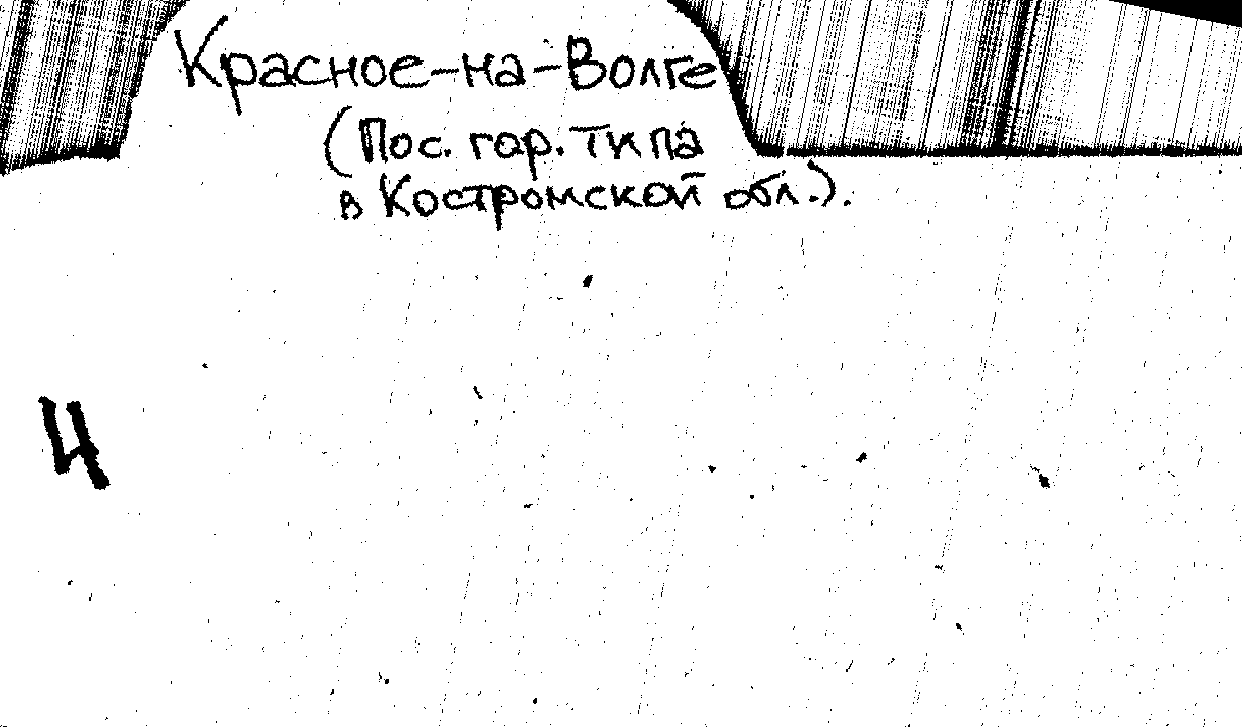 Красное-на-Волге
(Пос. гор. типа
в Костромской обл.).
Ч